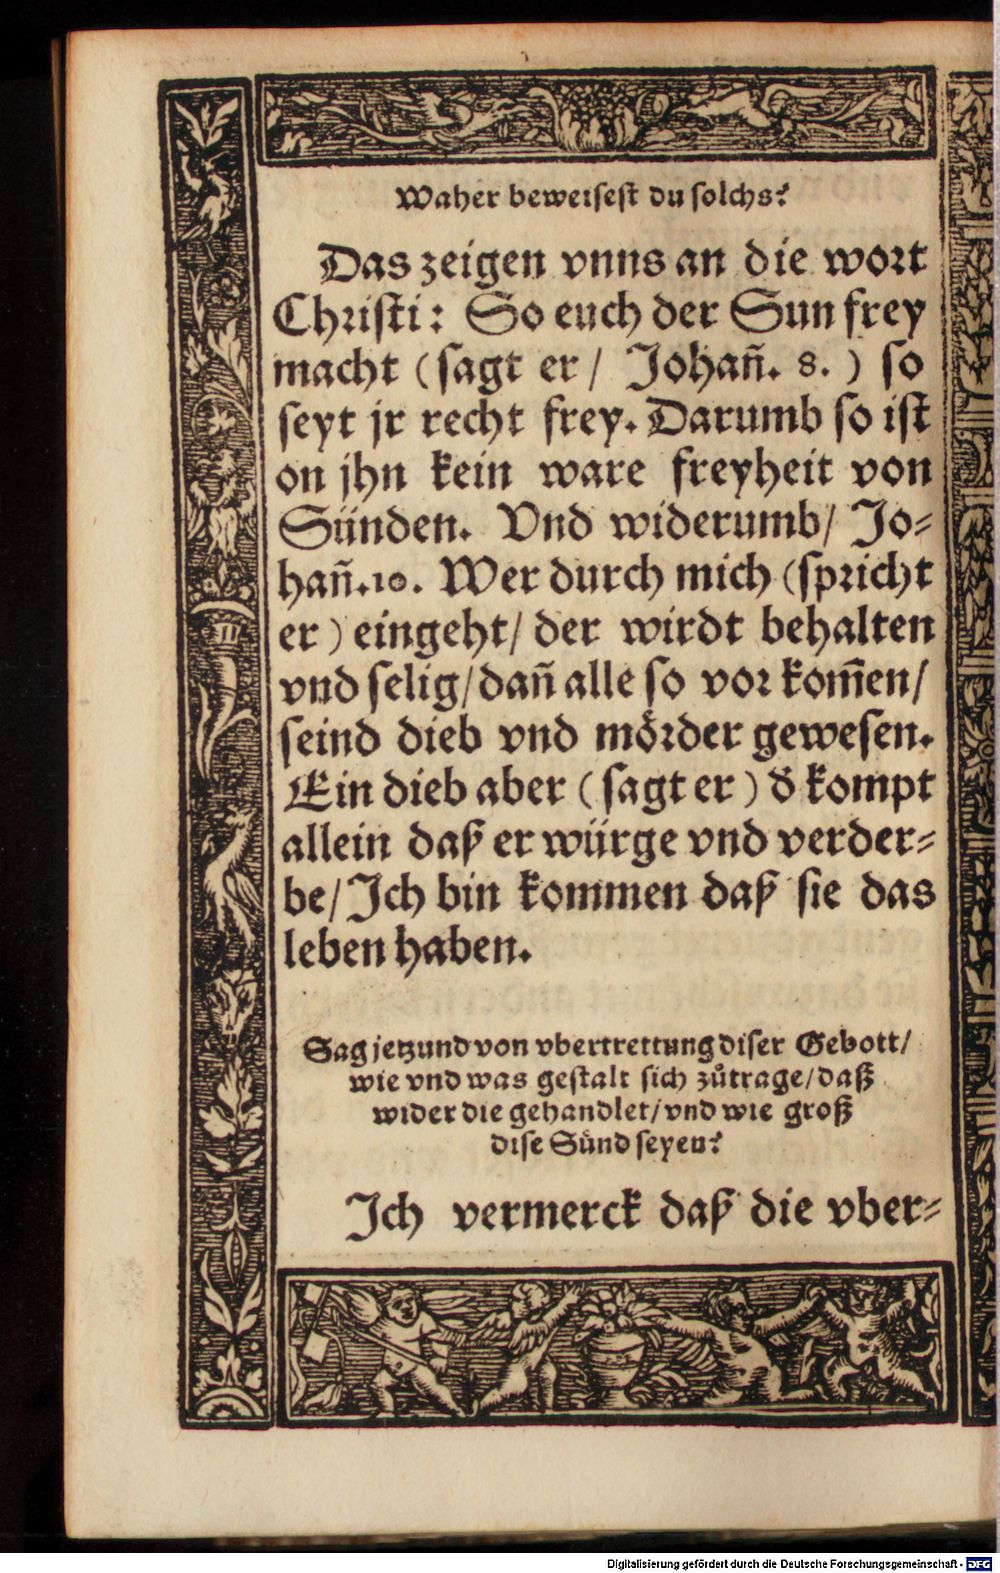 Waher beweisest du solchs?
Das zeigen vnns an die wort
Christi: So euch der Sun frey
macht (sagt er / Johañ. 8.) so
seyt jr recht frey. Darumb so ist
on jhn kein ware freyheit von
Sünden. Vnd widerumb/ Jo-
hañ.10. Wer durch mich (spricht
er) eingeht/ der wirdt behalten
vnd selig/dañ alle so vor kom̃en/
seind dieb vnd mörder gewesen.
Ein dieb aber (sagt er) d̕ kompt
allein daß er würge vnd verder-
be/Ich bin kommen daß sie das
leben haben.
Sag jetzund von vbertrettung diser Gebott/
wie vnd was gestalt sich zůtrage/daß
wider die gehandlet/vnd wie groß
dise Sünd seyen?
Ich vermerck daß die vber-
Digitalisierung gefördert durch die Deutsche Forschungsgemeinschaft - DFG